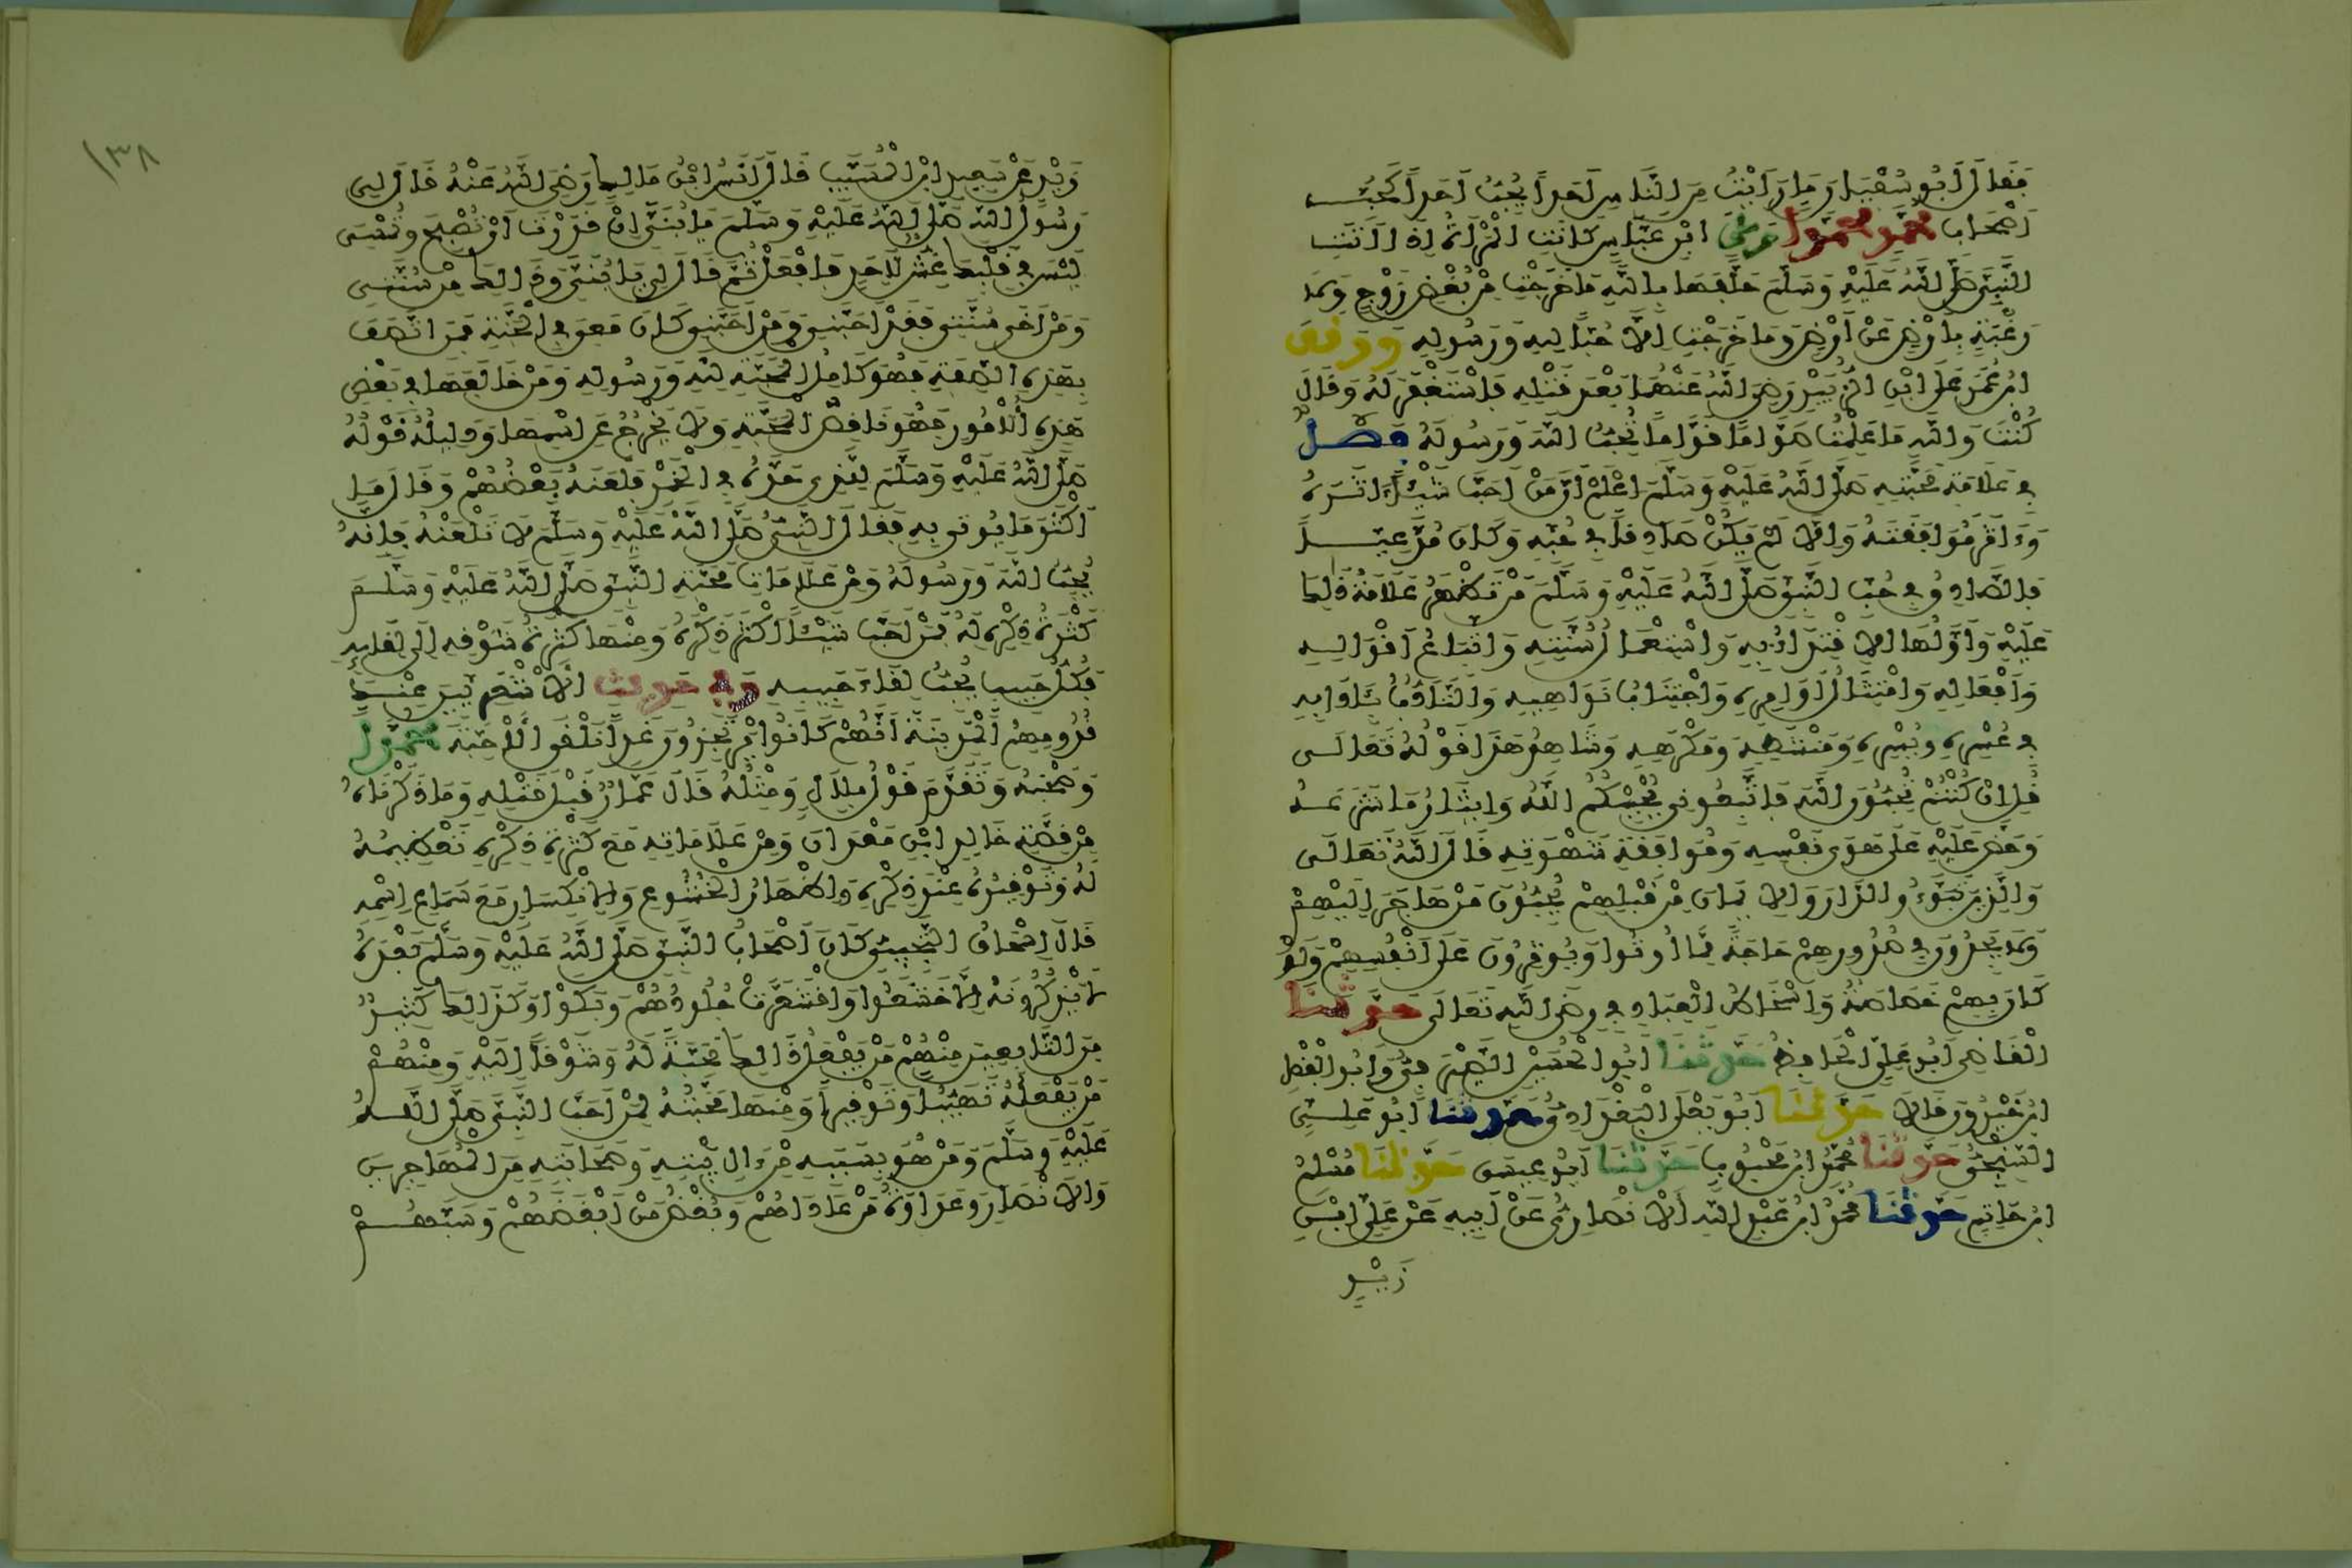 فَقَالَ أَبُو سُفْيَانَ مَا رَأَيْتُ مِنَ النَّاسِ أَحَداً يُحِبُّ أَحَداً كَحُبِّ
أَصْحَابِ مُحَمَّدٍ مُحَمَّداً وَعَنِ ابْنِ عَبَّاسٍ كَانَتِ الْمَرْأَةُ إِذَا أَتَتِ
النَّبِيَّ صَلَّى اللَّهُ عَلَيْهِ وَسَلَّمَ حَلَّفَهَا بِاللَّهِ مَا خَرَجْتِ مِنْ بُغْضِ زَوْجٍ وَلَا
رَغْبَةٍ بِأَرْضٍ عَنْ أَرْضٍ وَمَا خَرَجْتِ إِلَّا حُبّاً لِلَّهِ وَرَسُولِهِ وَوَقَفَ
ابْنُ عُمَرَ عَلَى ابْنِ الزُّبَيْرِ رَضِيَ اللَّهُ عَنْهُمَا بَعْدَ قَتْلِهِ فَاسْتَغْفَرَ لَهُ وَقَالَ
كُنْتَ وَاللَّهِ مَا عَلِمْتُ صَوَّاماً قَوَّاماً تُحِبُّ اللَّهَ وَرَسُولَهُ فَصْلٌ
فِي عَلَامَةِ مَحَبَّتِهِ صَلَّى اللَّهُ عَلَيْهِ وَسَلَّمَ اعْلَمْ أَنَّ مَنْ أَحَبَّ شَيْئاً آثَرَهُ
وَءَاثَرَ مُوَافَقَتَهُ وَإِلَّا لَمْ يَكُنْ صَادِقاً فِي حُبِّهِ وَكَانَ مُدَّعِياً
فَالصَّادِقُ فِي حُبِّ النَّبِيِّ صَلَّى اللَّهُ عَلَيْهِ وَسَلَّمَ مَنْ تَظْهَرُ عَلَامَةُ ذَلِكَ
عَلَيْهِ وَأَوَّلُهَا الِاقْتِدَاءُ بِهِ وَاسْتِعْمَالُ سُنَّتِهِ وَاتِّبَاعُ أَقْوَالِهِ
وَأَفْعَالِهِ وَامْتِثَالُ أَوَامِرِهِ وَاجْتِنَابُ نَوَاهِيهِ وَالتَّأَدُّبُ بِآدَابِهِ
فِي عُسْرِهِ وَيُسْرِهِ وَمَنْشَطِهِ وَمَكْرَهِهِ وَشَاهِدُ هَذَا قَوْلُهُ تَعَالَى
قُلْ إِنْ كُنْتُمْ تُحِبُّونَ اللَّهَ فَاتَّبِعُونِي يُحْبِبْكُمُ اللَّهُ وَإِيثَارُ مَا شَرَعَهُ
وَحَضَّ عَلَيْهِ عَلَى هَوَى نَفْسِهِ وَمُوَافَقَةِ شَهْوَتِهِ قَالَ اللَّهُ تَعَالَى
وَالَّذِينَ تَبَوَّءُو الدَّارَ وَالْإِيمَانَ مِنْ قَبْلِهِمْ يُحِبُّونَ مَنْ هَاجَرَ إِلَيْهِمْ
وَلَا يَجِدُونَ فِي صُدُورِهِمْ حَاجَةً مِمَّا أُوتُوا وَيُوثِرُونَ عَلَى أَنْفُسِهِمْ وَلَوْ
كَانَ بِهِمْ خَصَاصَةٌ وَإِسْخَاطُ الْعِبَادِ فِي رِضَى اللَّهِ تَعَالَى حَدَّثَنَا
الْقَاضِي أَبُو عَلِيٍّ الْحَافِظُ حَدَّثَنَا أَبُو الْحُسَيْنِ الصَّيْرَفِيُّ وَأَبُو الْفَضْلِ
ابْنُ خَيْرُونَ قَالَا حَدَّثَنَا أَبُو يَعْلَى الْبَغْدَادِيُّ حَدَّثَنَا أَبُو عَلِيٍّ
السِّنْجِيُّ حَدَّثَنَا مُحَمَّدُ ابْنُ مَحْبُوبٍ حَدَّثَنَا أَبُو عِيسَى حَدَّثَنَا مُسْلِمُ
ابْنُ حَاتِمٍ حَدَّثَنَا مُحَمَّدُ ابْنُ عَبْدِ اللَّهِ الْأَنْصَارِيُّ عَنْ أَبِيهِ عَنْ عَلِيِّ ابْنِ
زَيْدٍ
١٣٨
زَيْدٍ عَنْ سَعِيدِ ابْنِ الْمُسَيَّبِ قَالَ أَنَسُ ابْنُ مَالِكٍ رَضِيَ اللَّهُ عَنْهُ قَالَ لِي
رَسُولُ اللَّهِ صَلَّى اللَّهُ عَلَيْهِ وَسَلَّمَ يَا بُنَيَّ إِنْ قَدَرْتَ أَنْ تُصْبِحَ وَتُمْسِيَ
لَيْسَ فِي قَلْبِكَ غِشٌّ لِأَحَدٍ فَافْعَلْ ثُمَّ قَالَ لِي يَا بُنَيَّ وَذَلِكَ مِنْ سُنَّتِي
وَمَنْ أَحْيَى سُنَّتِي فَقَدْ أَحَبَّنِي وَمَنْ أَحَبَّنِي كَانَ مَعِي فِي الْجَنَّةِ فَمَنِ اتَّصَفَ
بِهَذِهِ الصِّفَةِ فَهُوَ كَامِلُ الْمَحَبَّةِ لِلَّهِ وَرَسُولِهِ وَمَنْ خَالَفَهَا فِي بَعْضِ
هَذِهِ الْأُمُورِ فَهُوَ نَاقِصُ الْمَحَبَّةِ وَلَا يَخْرُجُ عَنِ اسْمِهَا وَدَلِيلُهُ قَوْلُهُ
صَلَّى اللَّهُ عَلَيْهِ وَسَلَّمَ لِلَّذِي حَدَّهُ فِي الْخَمْرِ فَلَعَنَهُ بَعْضُهُمْ وَقَالَ مَا
أَكْثَرَ مَا يُوتَى بِهِ فَقَالَ النَّبِيُّ صَلَّى اللَّهُ عَلَيْهِ وَسَلَّمَ لَا تَلْعَنْهُ فَإِنَّهُ
يُحِبُّ اللَّهَ وَرَسُولَهُ وَمِنْ عَلَامَاتِ مَحَبَّةِ النَّبِيِّ صَلَّى اللَّهُ عَلَيْهِ وَسَلَّمَ
كَثْرَةُ ذِكْرِهِ لَهُ فَمَنْ أَحَبَّ شَيْئاً أَكْثَرَ ذِكْرَهُ وَمِنْهَا كَثْرَةُ شَوْقِهِ إِلَى لِقَائِهِ
فَكُلُّ حَبِيبٍ يُحِبُّ لِقَاءَ حَبِيبِهِ وَفِي حَدِيثِ الْأَشْعَرِيِّينَ عِنْدَ
قُدُومِهِمُ الْمَدِينَةَ أَنَّهُمْ كَانُوا يَرْتَجِزُونَ غَداً نَلْقَى الْأَحِبَّهْ مُحَمَّداً
وَصَحْبَهُ وَتَقَدَّمَ قَوْلُ بِلَالٍ وَمِثْلُهُ قَالَ عَمَّارٌ قَبْلَ قَتْلِهِ وَمَا ذَكَرْنَاهُ
مِنْ قِصَّةِ خَالِدِ ابْنِ مَعْدَانَ وَمِنْ عَلَامَاتِهِ مَعَ كَثْرَةِ ذِكْرِهِ تَعْظِيمُهُ
لَهُ وَتَوْقِيرُهُ عِنْدَ ذِكْرِهِ وَإِظْهَارُ الْخُشُوعِ وَالِانْكِسَارِ مَعَ سَمَاعِ اسْمِهِ
قَالَ إِسْحَاقُ التُّجِيبِيُّ كَانَ أَصْحَابُ النَّبِيِّ صَلَّى اللَّهُ عَلَيْهِ وَسَلَّمَ بَعْدَهُ
لَا يَذْكُرُونَهُ إِلَّا خَشَعُوا وَاقْشَعَرَّتْ جُلُودُهُمْ وَبَكَوْا وَكَذَلِكَ كَثِيرٌ
مِنَ التَّابِعِينَ مِنْهُمْ مَنْ يَفْعَلُ ذَلِكَ مَحَبَّةً لَهُ وَشَوْقاً إِلَيْهِ وَمِنْهُمْ
مَنْ يَفْعَلُهُ تَهَيُّباً وَتَوْقِيراً وَمِنْهَا مَحَبَّتُهُ لِمَنْ أَحَبَّ النَّبِيَّ صَلَّى اللَّهُ
عَلَيْهِ وَسَلَّمَ وَمَنْ هُوَ بِسَبَبِهِ مِنْ ءَالِ بَيْتِهِ وَصَحَابَتِهِ مِنَ الْمُهَاجِرِينَ
وَالْأَنْصَارِ وَعَدَاوَةُ مَنْ عَادَاهُمْ وَبُغْضُ مَنْ أَبْغَضَهُمْ وَسَبَّهُمْ